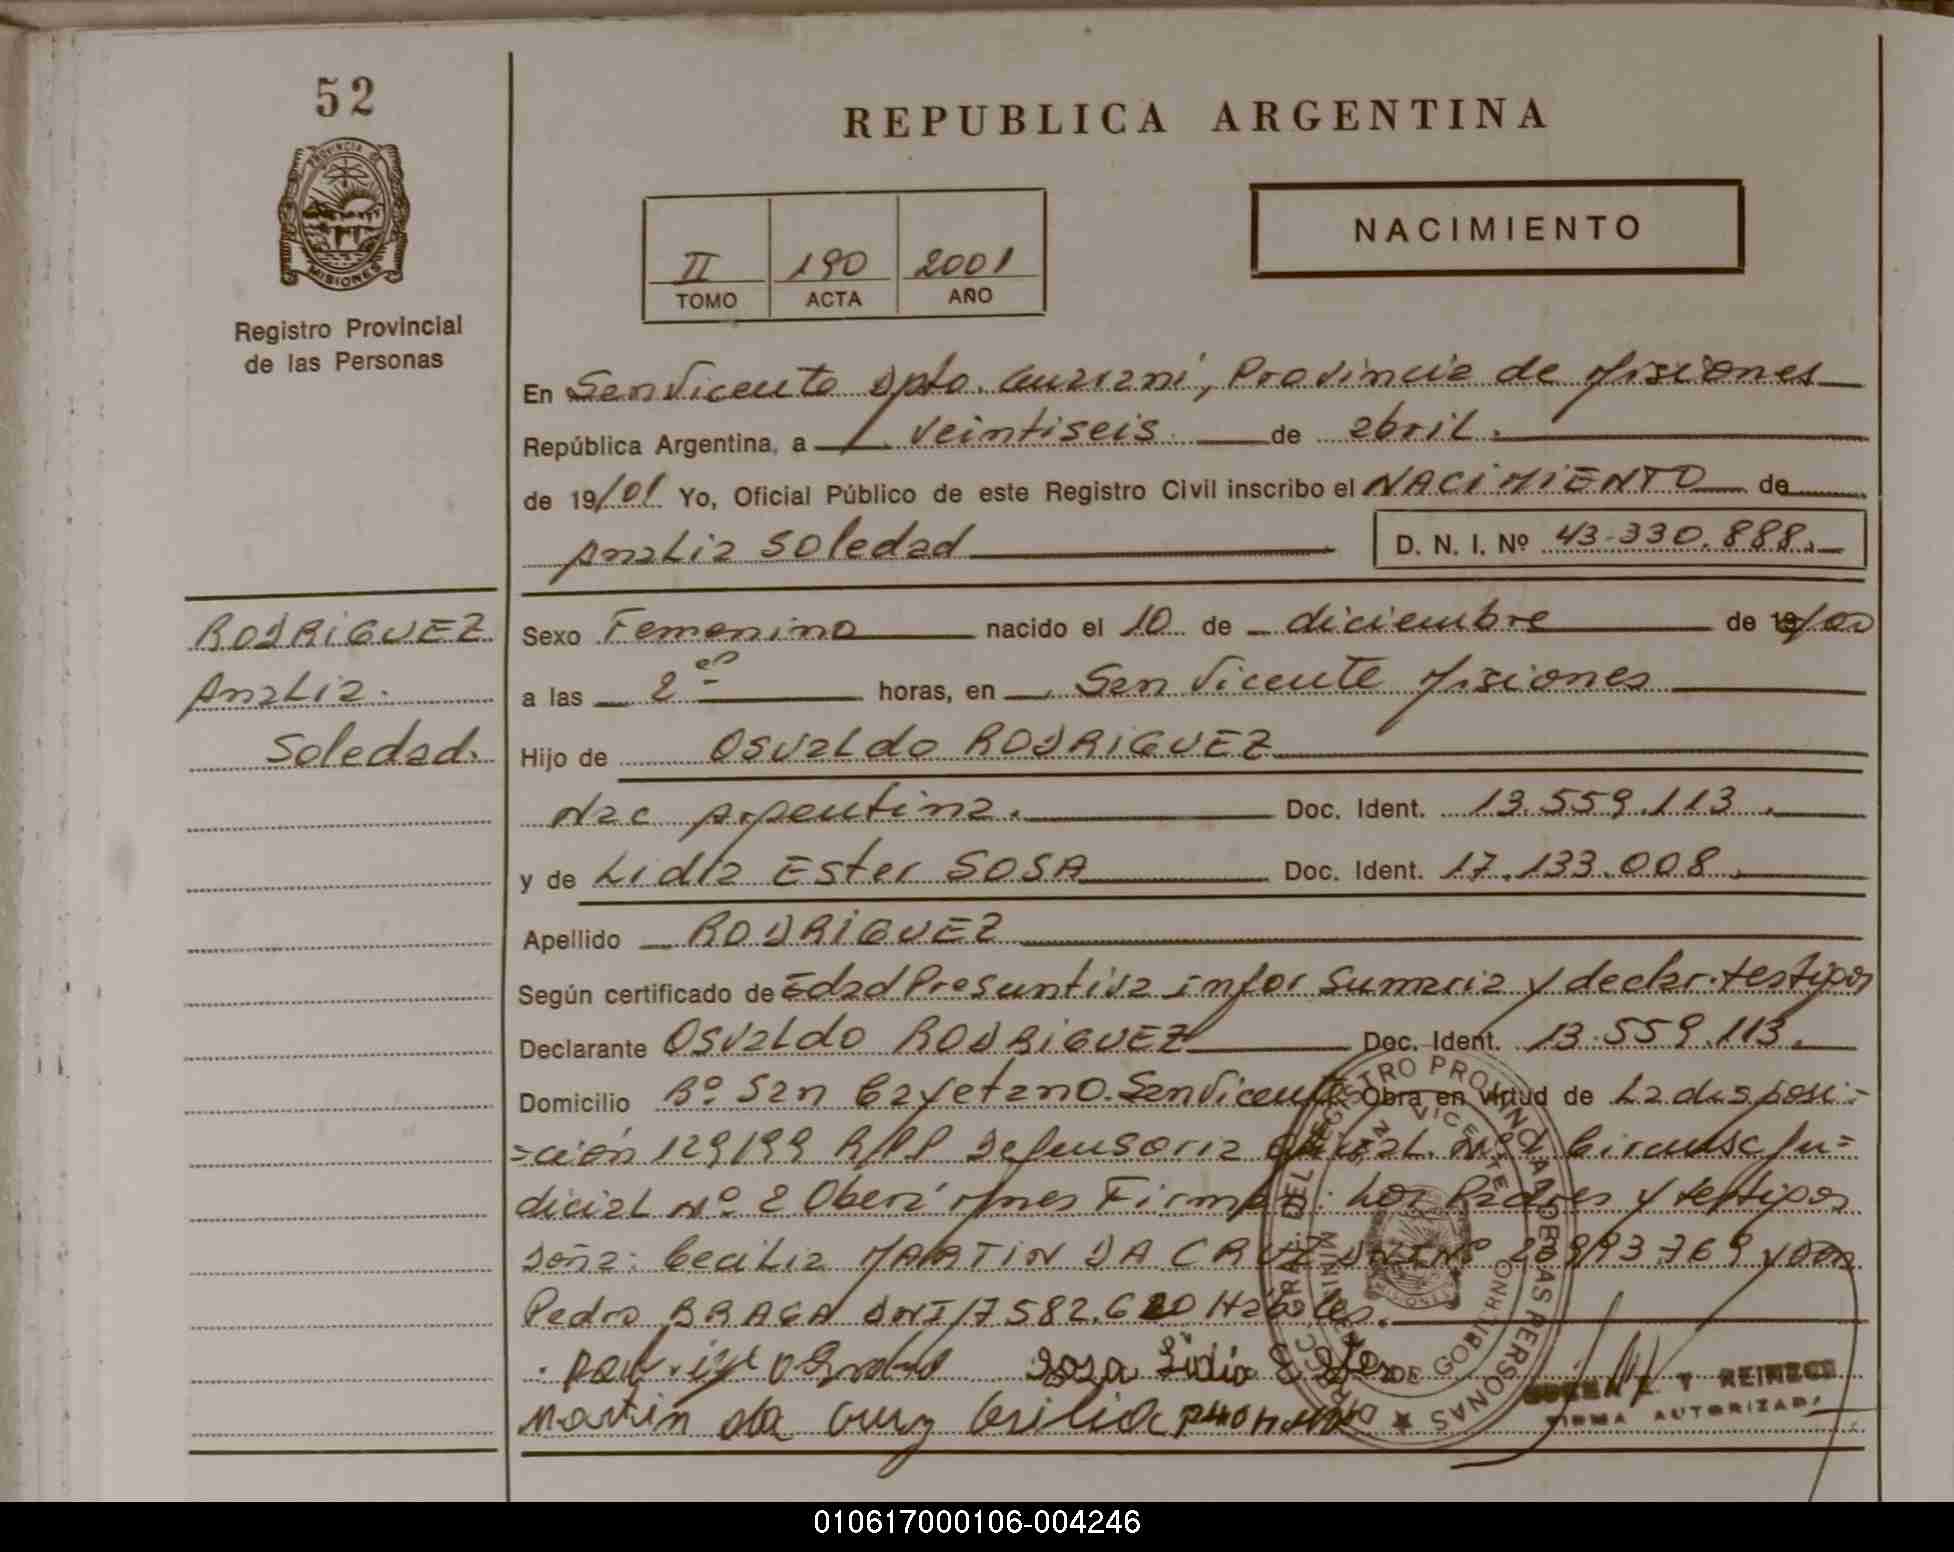 52
PROVINCIA DE
MISIONES
Registro Provincial
de las Personas
REPUBLICA ARGENTINA
NACIMIENTO
II 190 2001
TOMO ACTA AÑO
En San Vicente Dpto. Guarani, Provincia de Misiones
República Argentina, a veintiseis de abril.
de 19/01 Yo, Oficial Público de este Registro Civil inscribo el NACIMIENTO de
Analia Soledad D. N. I. Nº 43.330.888.
RODRIGUEZ
Analia.
Soledad.
Sexo Femenino nacido el 10 de diciembre de 19/00
a las 2 horas, en San Vicente Misiones
Hijo de Osvaldo RODRIGUEZ
Nac Argentina. Doc. Ident. 13.559.113.
y de Lidia Ester SOSA Doc. Ident. 17.133.008.
Apellido RODRIGUEZ
Según certificado de Edad Presuntiva infor Sumaria y declar. testigos
Declarante Osvaldo RODRIGUEZ Doc. Ident. 13.559.113.
Domicilio Bº San Cayetano. San Vicente Obra en virtud de La disposi-
=ción 129/99 RPP Defensoria Nº 1 Circunsc Ju=
dicial Nº 2 Obera Mnes Firman: Los Padres y testigos
Doña: Cecilia MARTIN DA CRUZ DNI Nº y Don
Pedro BRAGA DNI 17582.620 Habiles.
Sosa Lidia Ester
Martin da Cruz Cecilia
REGISTRO PROVINCIAL DE LAS PERSONAS
SAN VICENTE
MINISTERIO DE GOBIERNO
MISIONES
FIRMA AUTORIZADA
010617000106-004246